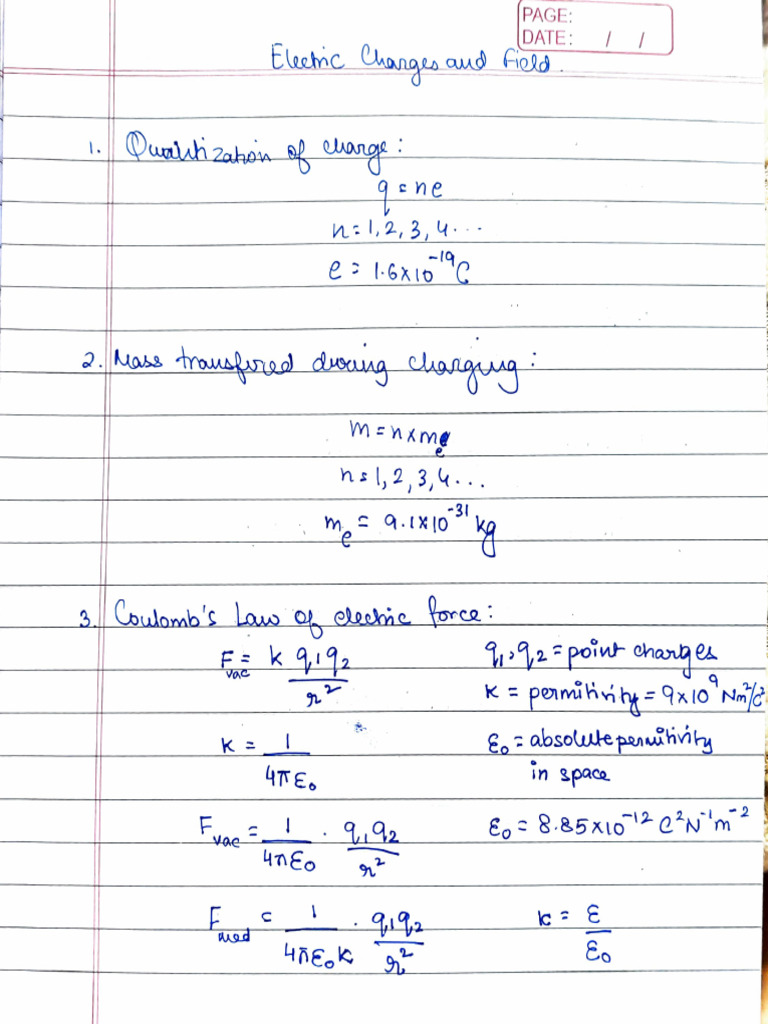 PAGE:
DATE: / /
Electric Charges and Field.
1. Quantization of charge:
q = ne
n = 1, 2, 3, 4...
e = 1.6×10⁻¹⁹C
2. Mass transfired during charging:
m = n×mₑ
n = 1, 2, 3, 4...
mₑ = 9.1×10⁻³¹ kg
3. Coulomb's Law of electric force:
F_vac = k q₁q₂/r² q₁, q₂ = point charges
K = permitivity = 9×10⁹ Nm²/C²
K = 1/4πε₀ ε₀ = absolute permitivity
in space
F_vac = 1/4πε₀ . q₁q₂/r² ε₀ = 8.85×10⁻¹² C²N⁻¹m⁻²
F_med = 1/4πε₀K . q₁q₂/r² K = ε/ε₀